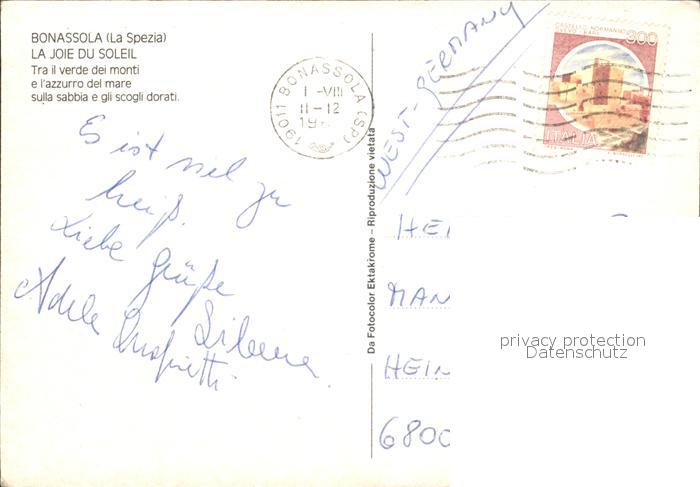 BONASSOLA (La Spezia)
LA JOIE DU SOLEIL
Tra il verde dei monti
e l'azzurro del mare
sulla sabbia e gli scogli dorati.
19011 BONASSOLA (SP)
1-VIII
11-12
19
CASTELLO NORMANNO
SVEVO BARI
300
ITALIA
WEST-GERMANY
Es ist viel zu
heiß.
Liebe Grüße
Adele
Da Fotocolor Ektakrome - Riproduzione vietata
HEI
MAN
HEIN
6800
privacy protection
Datenschutz